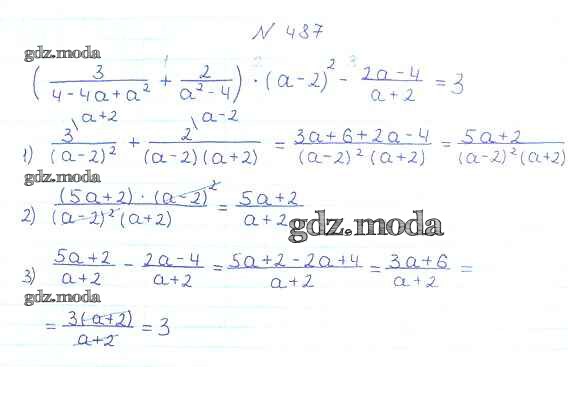 N 487
gdz.moda
1 2 3
( 3/(4-4a+a²) + 2/(a²-4) ) · (a-2)² - (2a-4)/(a+2) = 3
1) 3\a+2/(a-2)² + 2\a-2/((a-2)(a+2)) = (3a+6+2a-4)/((a-2)²(a+2)) = (5a+2)/((a-2)²(a+2))
gdz.moda
2) ((5a+2)·(a-2)²)/((a-2)²(a+2)) = (5a+2)/(a+2)
gdz.moda
3) (5a+2)/(a+2) - (2a-4)/(a+2) = (5a+2-2a+4)/(a+2) = (3a+6)/(a+2) =
gdz.moda
= 3(a+2)/(a+2) = 3